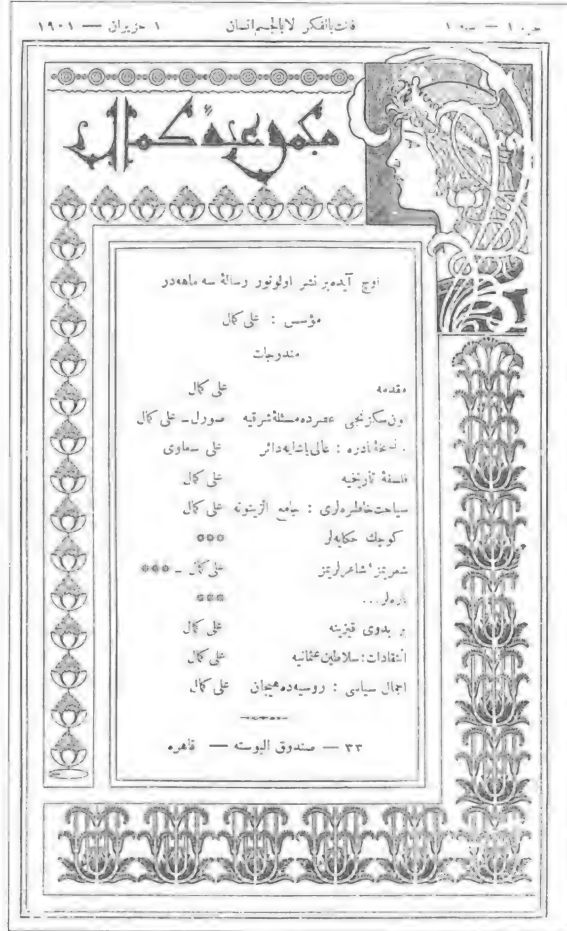 جزء ١ — سنه ١ فانت بالفكر لا بالجسم انسان ١ حزيران — ١٩٠١
مجموعهٔ كمال
اوچ آيده بر نشر اولونور رسالهٔ سه ماهه‌در
مؤسس : على كمال
مندرجات
مقدمه على كمال
اون سكزنجى عصرده مسئلهٔ شرقيه صورل ـ على كمال
نسخهٔ نادره : عالى پاشايه دائر على سعاوى
فلسفهٔ تاريخيه على كمال
سياحت خاطره‌لرى : جامع الزيتونه على كمال
كوچك حكايه‌لر ***
شعريمز ، شاعرلريمز على كمال ـ ***
ياره‌لر... ***
بر بدوى قيزينه على كمال
انتقادات : سلاطين عثمانيه على كمال
اجمال سياسى : روسيه‌ده هيجان على كمال
٣٣ — صندوق البوسته — قاهره